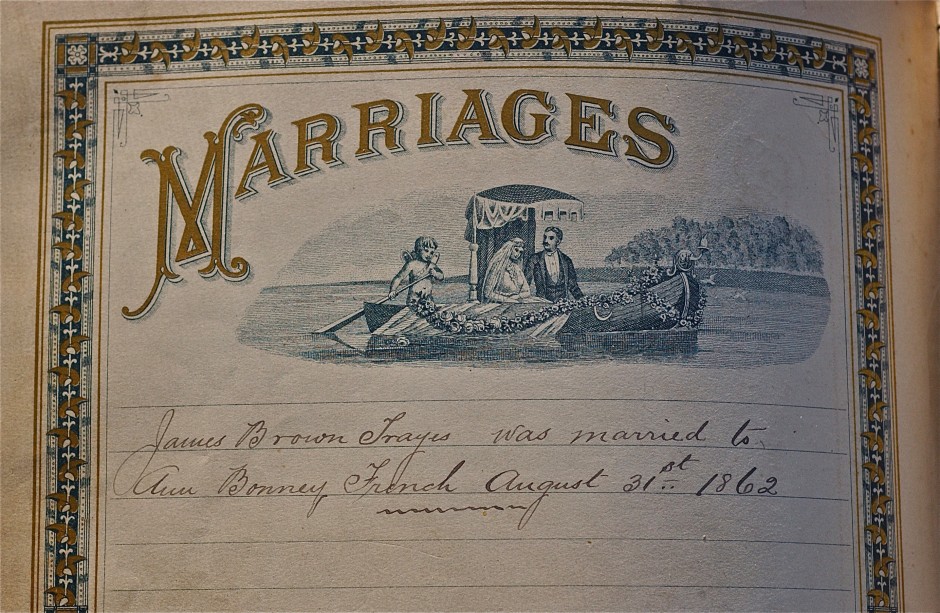 MARRIAGES
James Brown Trayes was married to
Ann Bonney French August 31st 1862